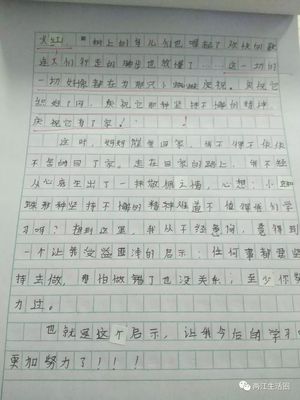 火红 树上的鸟儿们也唱起了欢快的歌
连人们行走的脚步也放慢了……这一切的
一切好像都在为那只小蜘蛛庆祝。庆祝它
织好了网，庆祝它那种坚持不懈的精神，
庆祝它有了家！！
这时，妈妈催我回家，我不得不依依
不舍的回了家。走在回家的路上，我不经
从心底生出了一种敬佩之情，心想：小蜘
蛛那种坚持不懈的精神难道不值得我们学
习吗？想到这里，我从不经意间，竟得到
一个让我受益匪浅的启示：任何事都要坚
持去做，有怕做错了也没关系；至少你努
力过。
也就是这个启示，让我今后的学习
更加努力了！！！！
两江生活圈